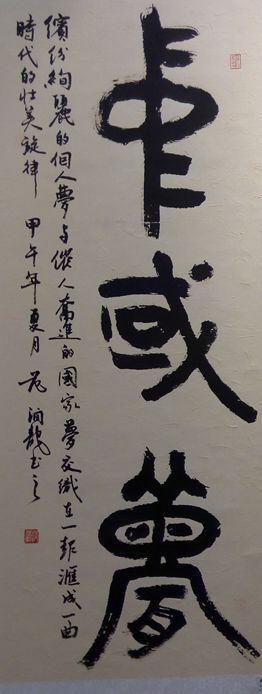 中或夢
繽紛絢麗的個人夢与催人奮進的國家夢交織在一起滙成一曲
時代的壯美旋律 甲午年夏月 范龍书之